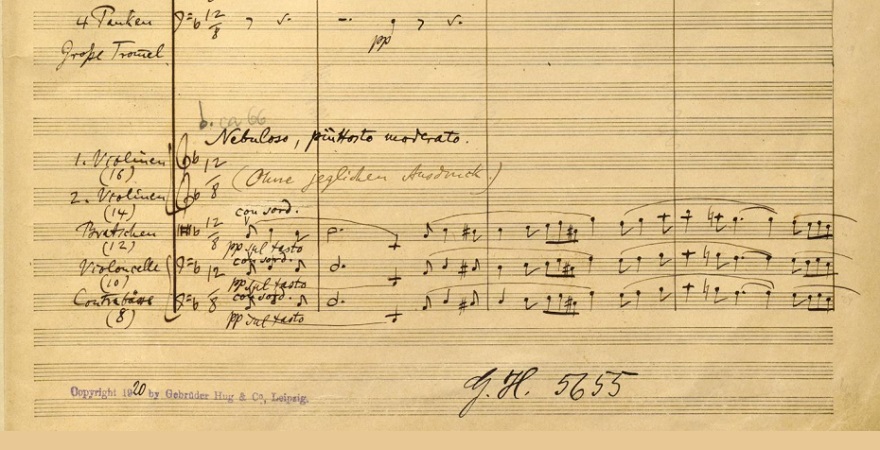 4 Pauken
12
8
pp
Große Trommel
ca 66
Nebuloso, piuttosto moderato.
1. Violinen
(16)
12
8
(Ohne jeglichen Ausdruck)
2. Violinen
(14)
con sord.
Bratschen
12
8
(12)
pp sul tasto
con sord.
Violoncelle
12
(10)
pp sul tasto
con sord.
Contrabässe
8
(8)
pp sul tasto
Copyright 1920 by Gebrüder Hug & Co, Leipzig.
G. H. 5655